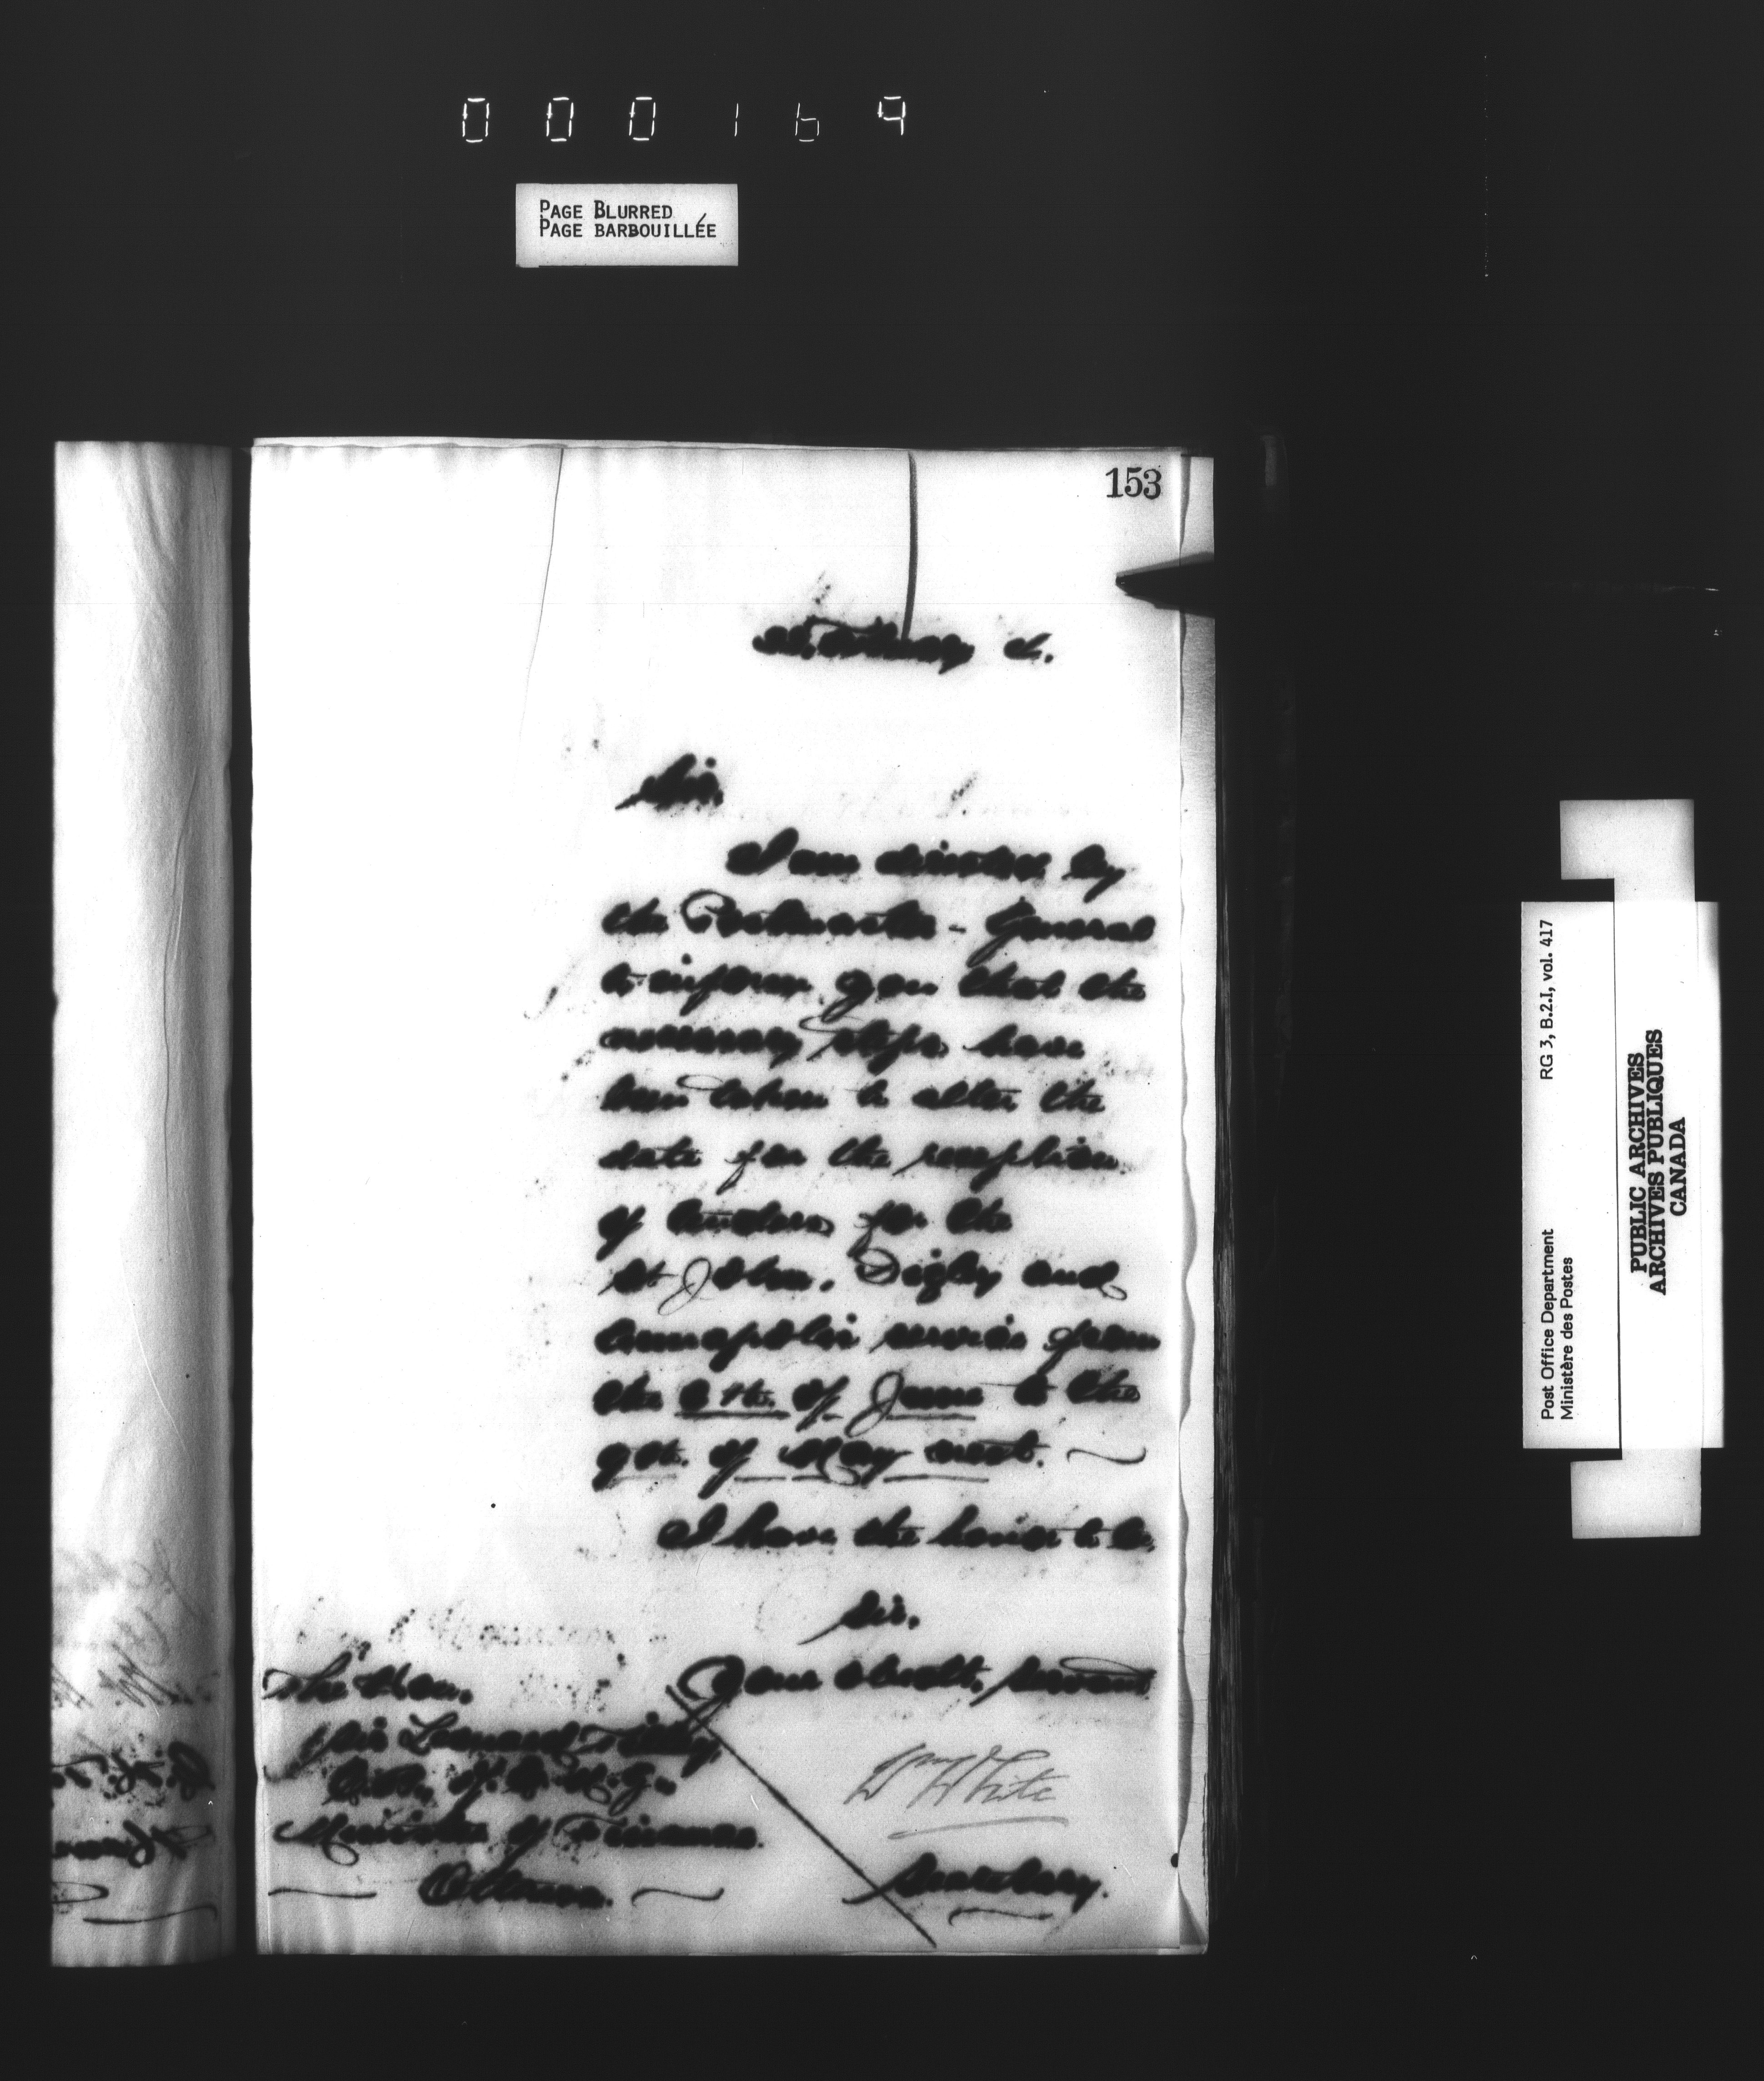 000169
PAGE BLURRED
PAGE BARBOUILLÉE
153
Sir,
I am directed by
the Postmaster-General
to inform you that the
necessary steps have
been taken to alter the
date for the reception
of tenders for the
St John, Digby and
Annapolis service from
the 6th. of June to the
of May next.
I have the honor to be,
Sir,
Your obedt. servant
Wm White
Secretary.
The Hon.
Sir Leonard Tilley,
Minister of Finance.
Ottawa.
RG 3, B.2.I, vol. 417
Post Office Department
Ministère des Postes
PUBLIC ARCHIVES
ARCHIVES PUBLIQUES
CANADA